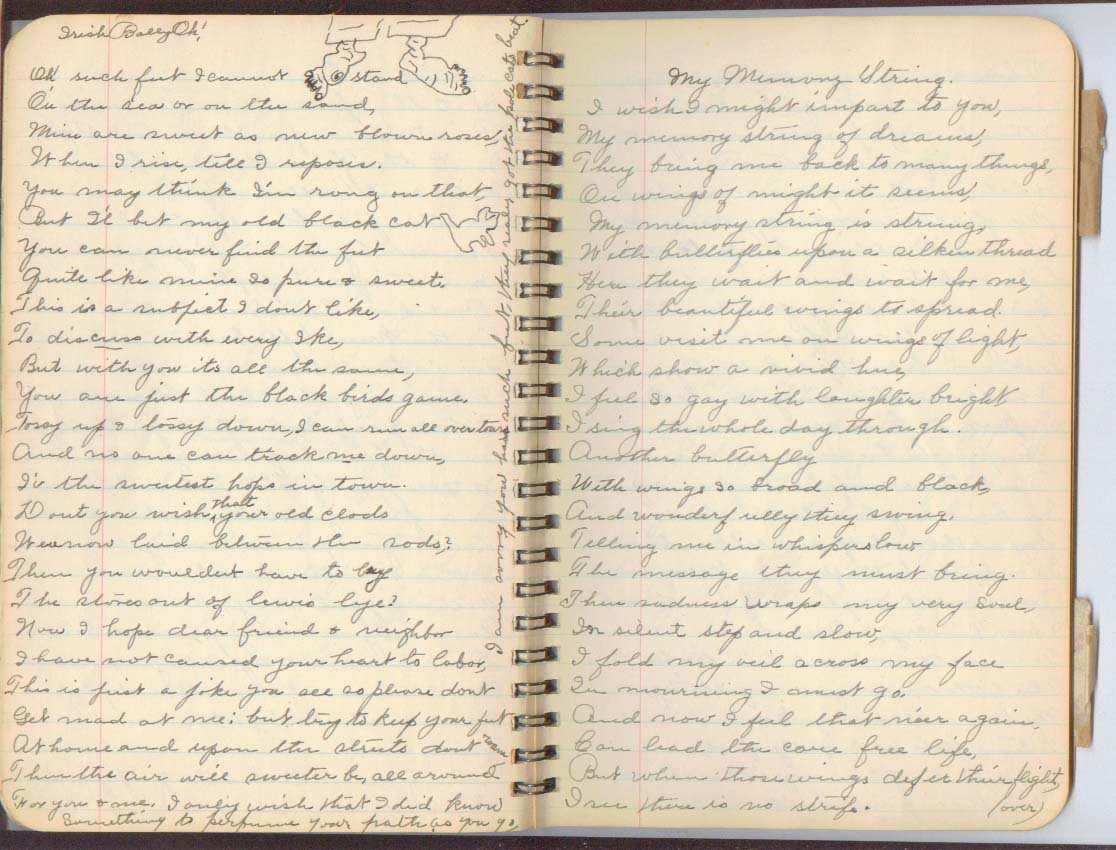 Irish Ballly Oh!
Oh! such feet I cannot stand
On the sea or on the sand,
Mine are sweet as new blown roses,
When I rise, till I reposes.
You may think I'm rong on that,
But I'l bet my old black cat
You can never find the feet
Quite like mine so pure & sweet.
This is a subject I dont like,
To discuss with every Ike,
But with you its all the same,
You are just the black birds game.
Tossy up & lossy down, I can run all over town
And no one can track me down,
I'v the sweetest hops in town.
Dont you wish that your old clods
Were now laid between the sods?
Then you wouldent have to buy
The stores out of lewis lye?
Now I hope dear friend & neighbor
I have not caused your heart to labor,
This is just a joke you see so please dont
Get mad at me; but try to keep your feet
At home and upon the streets dont roam
Then the air will sweeter be, all around
For you & me. I only wish that I did know
Something to perfume your path as you go,
I am sorry you have such feet they realy got the pole cats beat.
My Memory String.
I wish I might impart to you,
My memory string of dreams,
They bring me back to many things,
On wings of might it seems,
My memory string is strung,
With butterflies upon a silken thread
Here they wait and wait for me,
Their beautiful wings to spread.
Some visit me on wings of light,
Which show a vivid hue,
I feel so gay with laughter bright
I sing the whole day through.
Another butterfly
With wings so broad and black,
And wonderfully they swing,
Telling me in whispers low
The message they must bring.
Then sadness wraps my very soul,
In silent step and slow,
I fold my veil across my face
In mourning I must go.
And now I feel that n'eer again,
Can lead the care free life,
But when those wings defer their flight,
I see there is no strife.
(over)